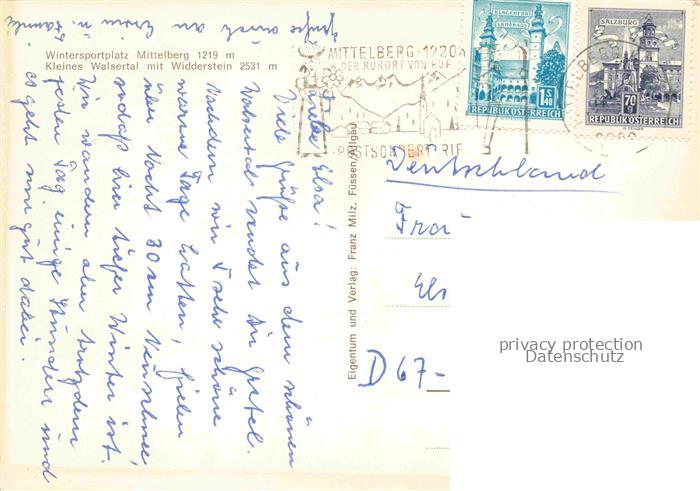 Wintersportplatz Mittelberg 1219 m
Kleines Walsertal mit Widderstein 2531 m
Liebe Elsa!
Viele Grüße aus dem schönen
Walsertal sendet Dir Gretel.
Nachdem wir 5 sehr schöne
warme Tage hatten, fielen
über Nacht 30 cm Neuschnee,
sodaß hier tiefer Winter ist.
Wir wandern aber trotzdem
jeden Tag einige Stunden und
es geht uns gut dabei.
Grüße auch an Erwin u. Familie
Eigentum und Verlag: Franz Milz, Füssen/Allgäu
MITTELBERG · 1220 m
DER KURORT VON RUF
POSTSONDERTARIF
KLAGENFURT
LANDHAUS
S 1.40
REPUBLIK ÖSTERREICH
SALZBURG
70 g
REPUBLIK ÖSTERREICH
Deutschland
Frau
Els
D 67-
privacy protection
Datenschutz